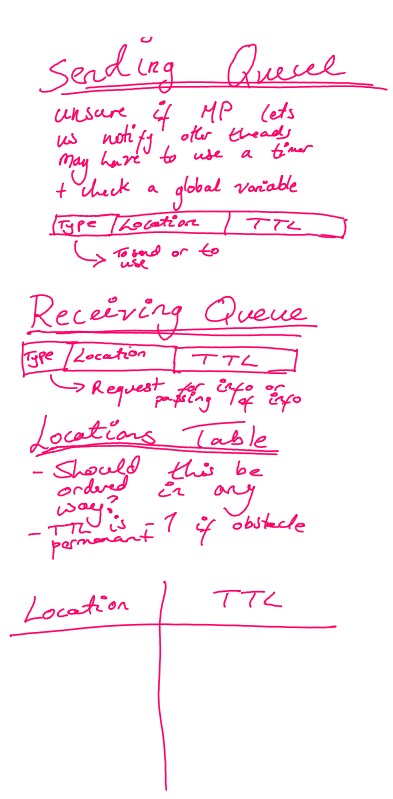 Sending Queue
unsure if MP lets
us notify other threads
May have to use a timer
+ check a global variable
Type Location TTL
To send or to
use
Receiving Queue
Type Location TTL
Request for info or
passing of info
Locations Table
- Should this be
ordered in any
way?
- TTL is -1 if obstacle
permanant
Location TTL